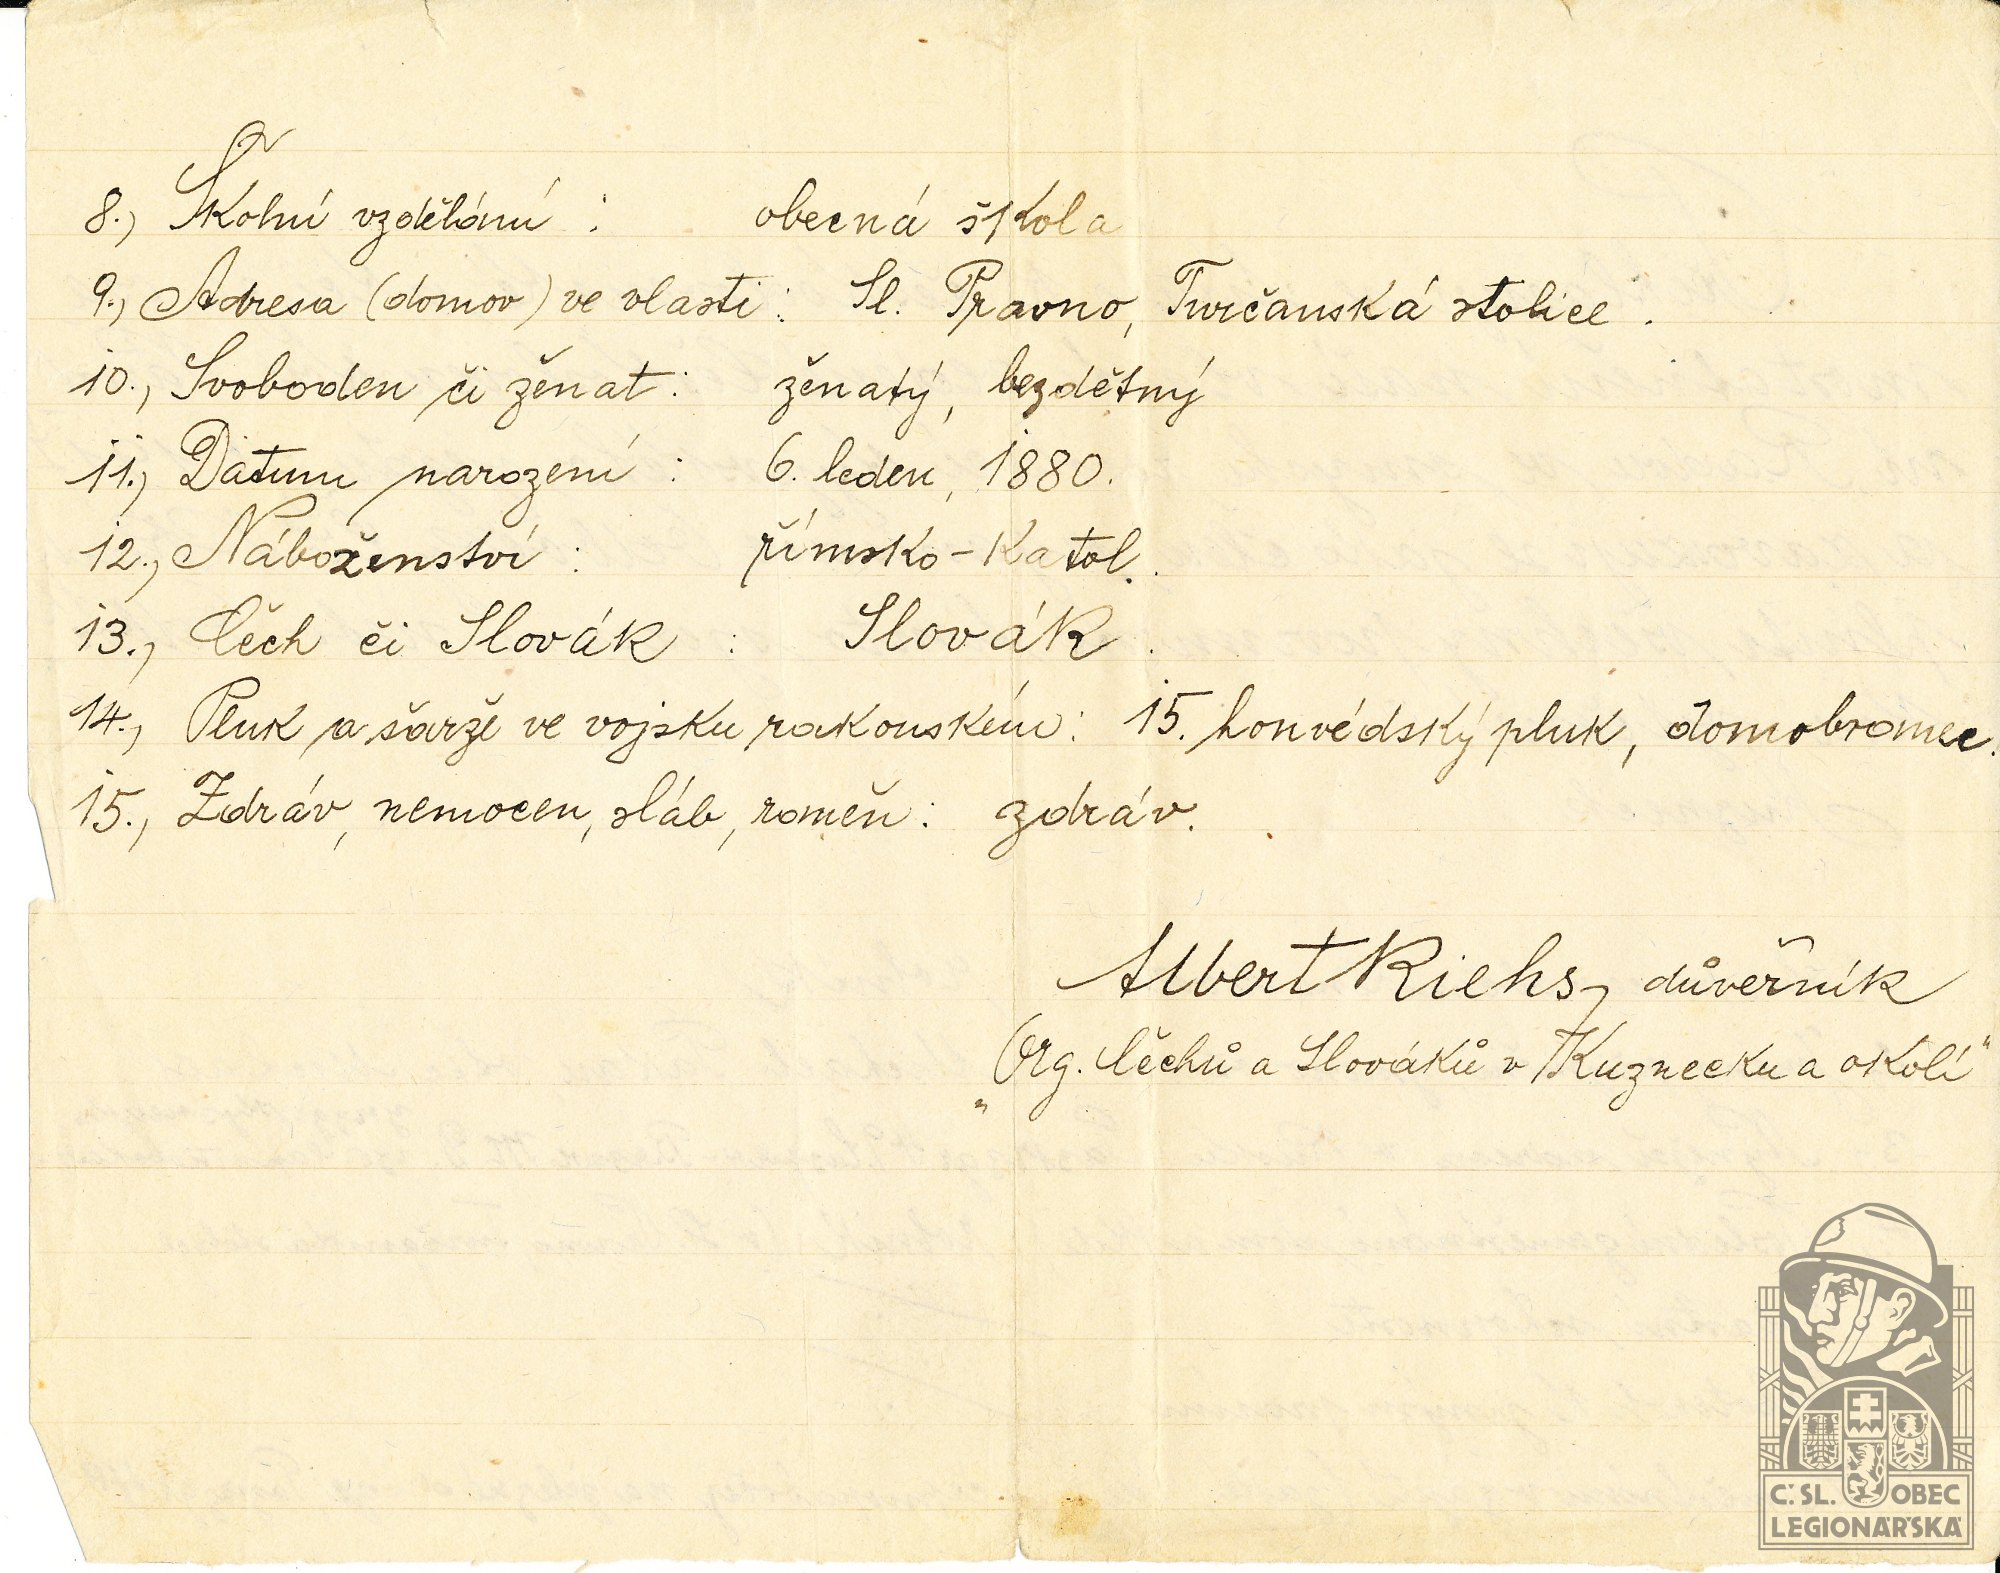 8., Školní vzdělání : obecná škola
9., Adresa (domov) ve vlasti : Sl. Pravno, Turčanská stolice.
10., Svoboden či ženat : ženatý, bezdětný
11., Datum narození : 6. leden, 1880.
12., Náboženství : římsko-katol.
13., Čech či Slovák : Slovák.
14., Pluk a šarže ve vojsku rakouském : 15. honvédský pluk, domobranec.
15., Zdráv, nemocen, sláb, raněn : zdráv.
Albert Riehs, důvěrník
„Org. Čechů a Slováků v Kuznecku a okolí“
Č.SL. OBEC
LEGIONÁŘSKÁ